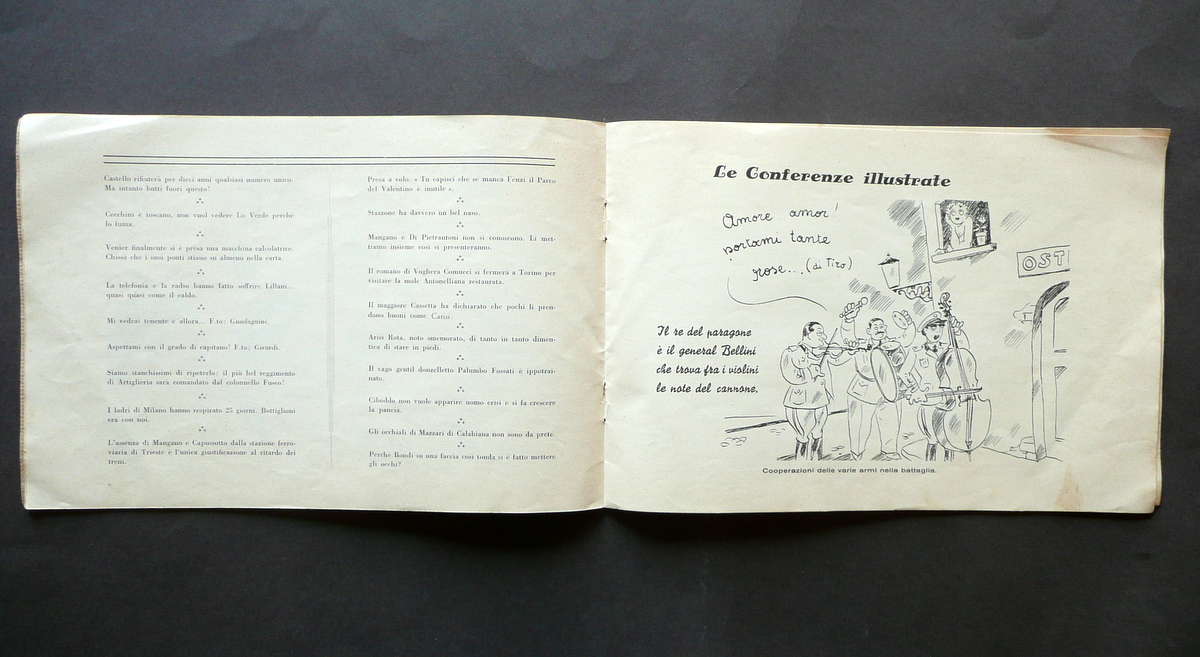 Castello rifiuterà per dieci anni qualsiasi numero unico.
Ma intanto butti fuori questo!
Cecchini è toscano, non vuol vedere Lo Verde perchè
lo fuma.
Venier finalmente si è presa una macchina calcolatrice.
Chissà che i suoi ponti stiano su almeno nella carta.
La telefonia e la radio hanno fatto soffrire Lillani...
quasi quasi come il caldo.
Mi vedrai tenente e allora... F.to: Guadagnini.
Aspettami con il grado di capitano! F.to: Girardi.
Siamo stanchissimi di ripeterlo: il più bel reggimento
di Artiglieria sarà comandato dal colonnello Fusco!
I ladri di Milano hanno respirato 25 giorni. Bottiglioni
era con noi.
L'assenza di Mangano e Capussotto dalla stazione ferro-
viaria di Trieste è l'unica giustificazione al ritardo dei
treni.
Presa a volo. « Tu capisci che se manca Fenzi il Parco
del Valentino è inutile ».
Stazzone ha davvero un bel naso.
Mangano e Di Pietrantoni non si conoscono. Li met-
tiamo insieme così si presenteranno.
Il romano di Voghera Cornucci si fermerà a Torino per
visitare la mole Antonelliana restaurata.
Il maggiore Cassetta ha dichiarato che pochi li pren-
dono buoni come Carisi.
Arisi Rota, noto smemorato, di tanto in tanto dimen-
tica di stare in piedi.
Il vago gentil donzelletto Palumbo Fossati è ippotrai-
nato.
Ciboddo non vuole apparire uomo crisi e si fa crescere
la pancia.
Gli occhiali di Mazzari di Calabiana non sono da prete.
Perchè Bondi su una faccia così tonda si è fatto mettere
gli occhi?
Le Conferenze illustrate
Amore amor!
portami tante
rose... (di Tiro)
OST
Il re del paragone
è il general Bellini
che trova fra i violini
le note del cannone.
Cooperazioni delle varie armi nella battaglia.